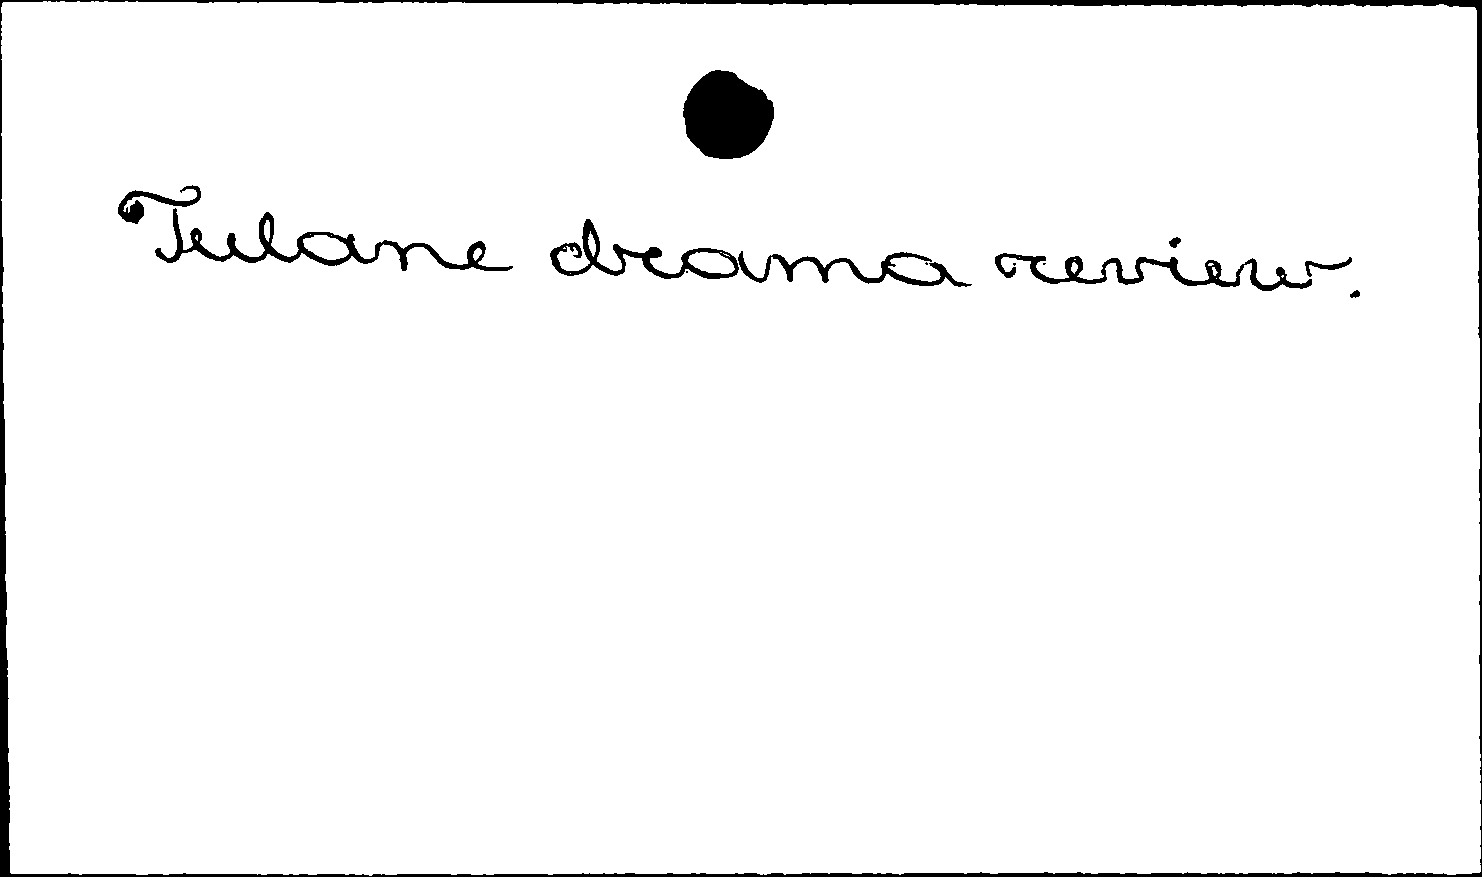 Tulane drama review.